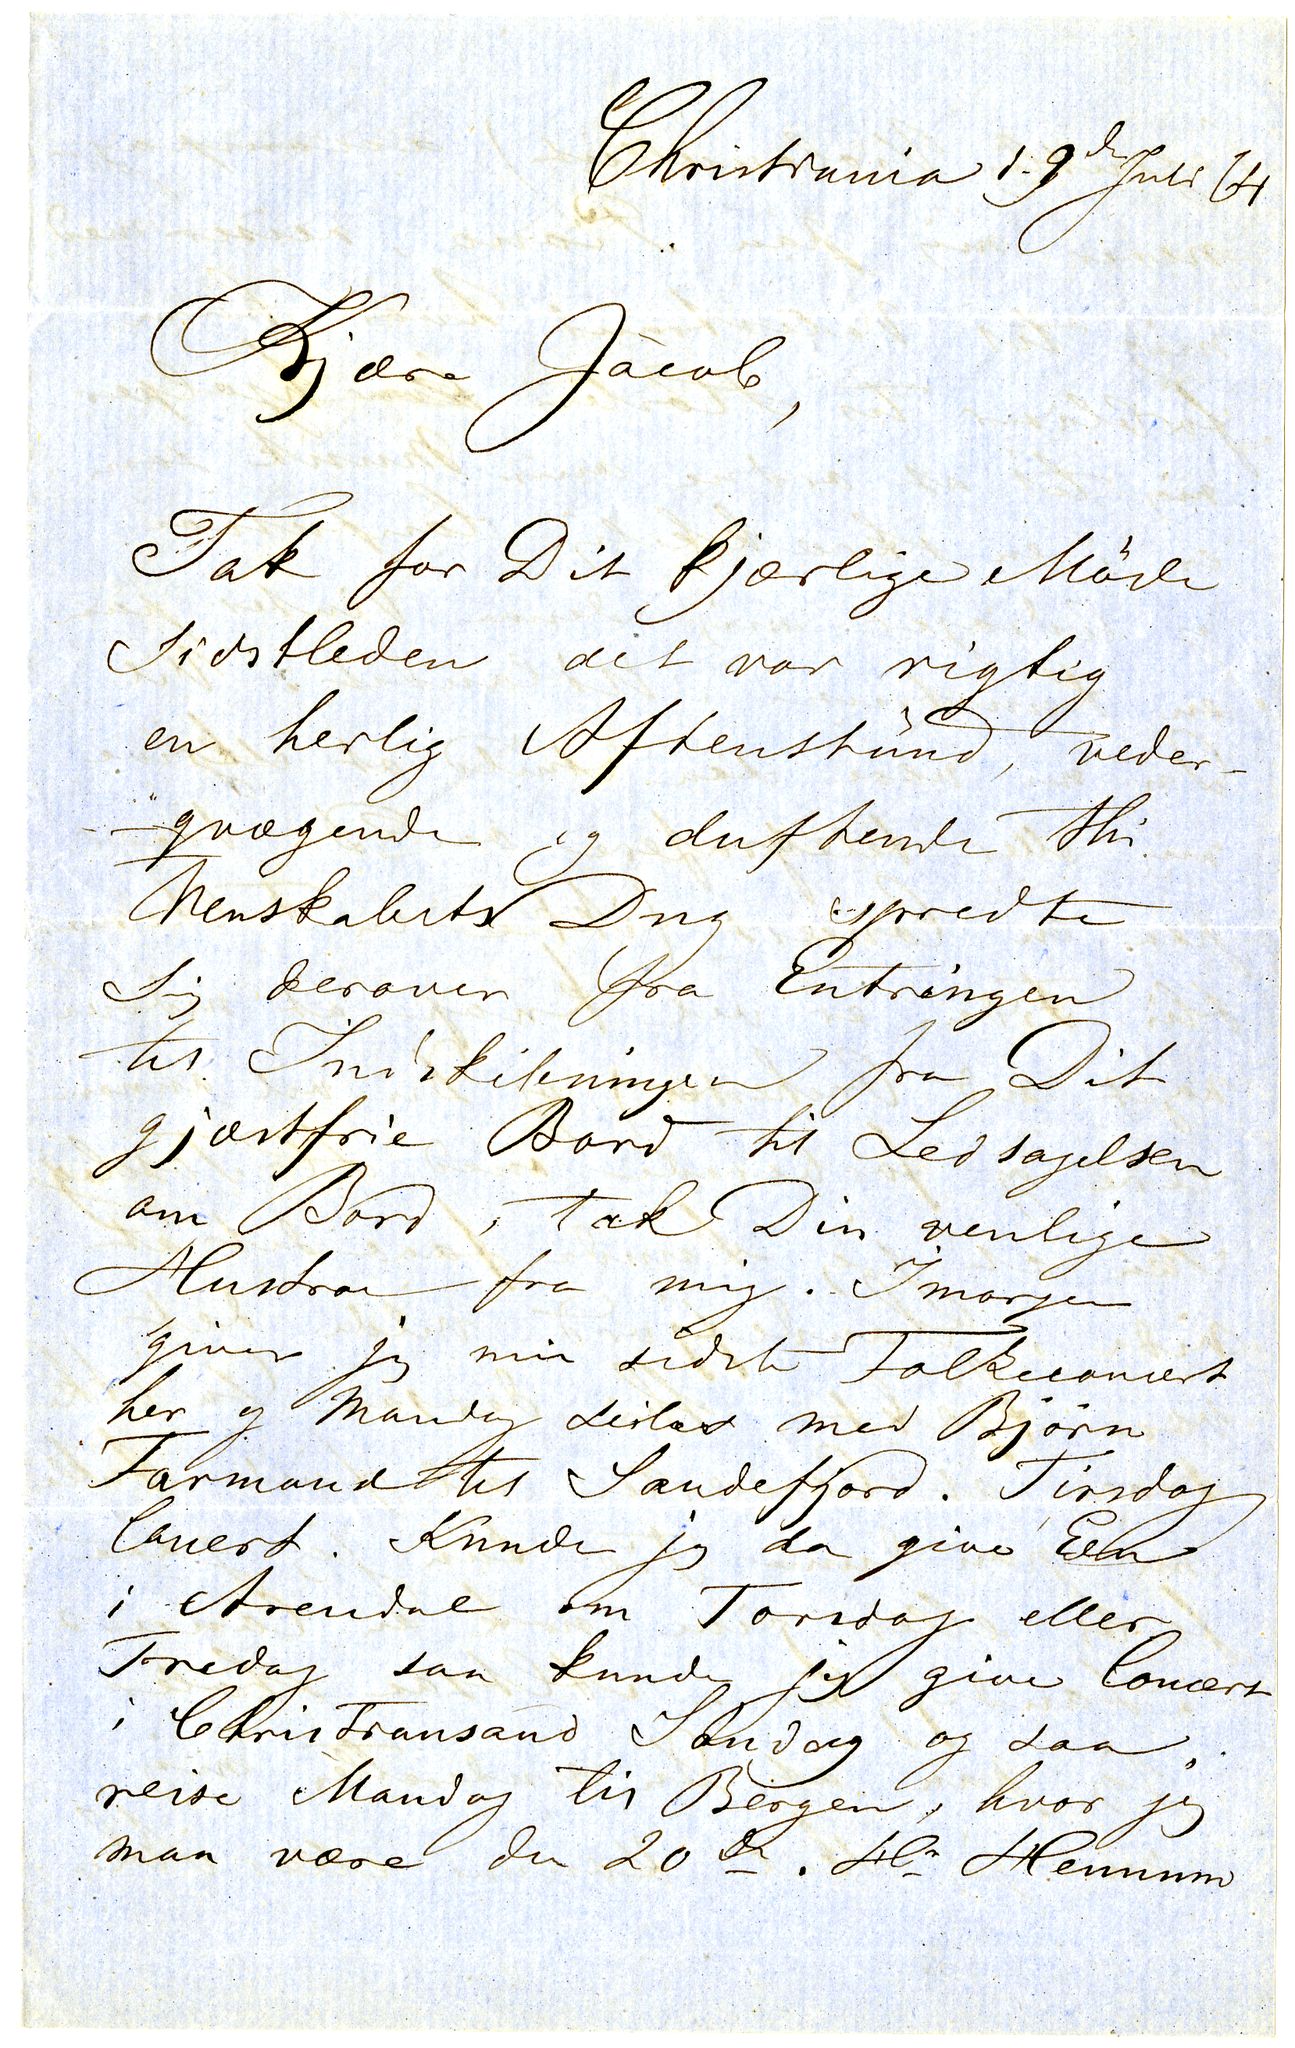 Christiania d. 9de Juli 64
Kjære Jacob,
Tak for Dit kjærlige Möde
sidstleden det var rigtig
en herlig Aftenstund, veder-
qvægende og duftende thi
Venskabets Dug spredte
sig derover fra Entringen
til Indskibningen fra Dit
gjæstfrie Bord til Ledsagelsen
om Bord, tak Din venlige
Hustroe fra mig. Imorgen
giver jeg min sidste Folkeconcert
her og Mandag seiler med Björn
Farmand til Sandefjord. Tirsdag
Concert. Kunde jeg da give Een
i Arendal om Torsdag eller
Fredag saa kunde jeg give Concert
i Christiansand Søndag og saa
reise Mandag til Bergen, hvor jeg
maa være den 20de. Hr Hennum